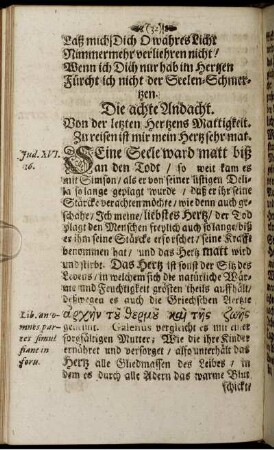 (32)
Laß mich Dich O wahres Licht
Nimmermehr verliehren nicht/
Wenn ich Dich nur hab im Hertzen
Fürcht ich nicht der Seelen-Schmer-
tzen.
Die achte Andacht.
Von der letzten Hertzens Mattigkeit.
Zu reisen ist mir mein Hertz sehr mat.
Jud. XVI.
16.
Seine Seele ward matt biß
an den Todt / so weit kam es
mit Simson / als er von seiner listigen Deli-
la so lange geplagt wurde / daß er ihr seine
Stärcke verachten möchte / wie denn auch ge-
schahe / Ich meine / liebstes Hertz / der Tod
plagt den Menschen freylich auch so lange / biß
er ihm seine Stärcke erforschet / seine Kräffte
benommen hat / und das Hertz matt wird
und stirbt. Das Hertz ist sonst der Sitz des
Lebens / in welchen sich die natürliche Wär-
me und Feuchtigkeit grösten theils auffhält /
deßwegen es auch die Griechschen Aertzte
ἀρχὴν τοῦ θερμοῦ καὶ τῆς ζωῆς
Lib. an o-
mnes par-
tes simul
fiant in
foru.
genennt. Galenus vergleicht es mit einer
sorgfältigen Mutter; Wie die ihre Kinder
ernähret und versorget / also unterhält das
Hertz alle Gliedmassen des Leibes / in
dem es durch alle Adern das warme Blut
schickte